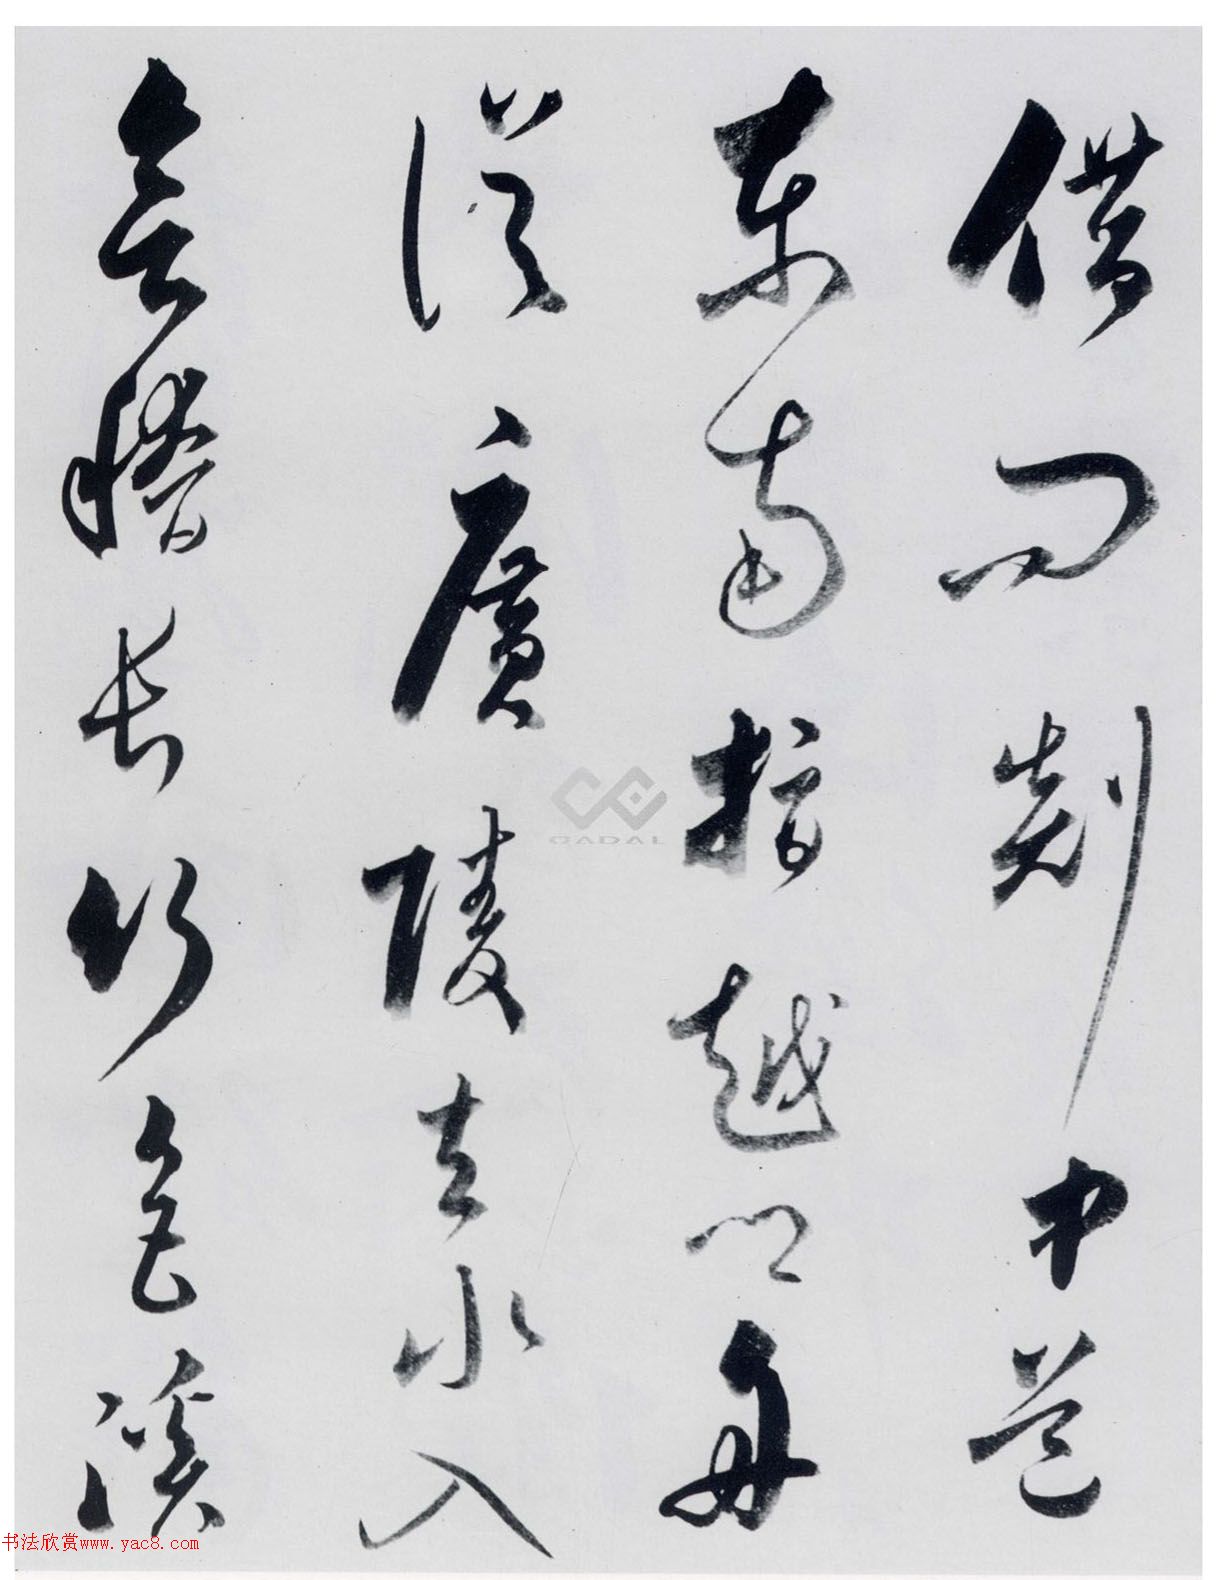 借问剡中道
东南指越乡舟
从广陵去水入
会稽长竹色溪
CADAL
书法欣赏www.yac8.com